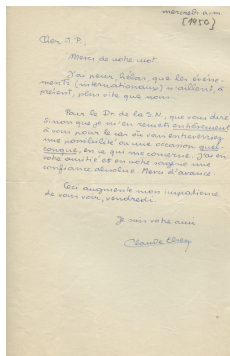 mercredi a.m.
[1950]
Cher J.P.,
Merci de votre mot.
J'ai peur, hélas, que les évène-
ments (internationaux) n'aillent, à
présent, plus vite que nous.
Pour le Dr. de la S.N., que vous dire
sinon que je m'en remets entièrement
à vous pour le cas où vous entreverriez
une possibilité ou une occasion quel-
conque, en ce qui me concerne. J'ai en
votre amitié et en votre sagesse une
confiance absolue. Merci d'avance
Ceci augmente mon impatience
de vous voir, vendredi.
Je suis votre ami
Claude